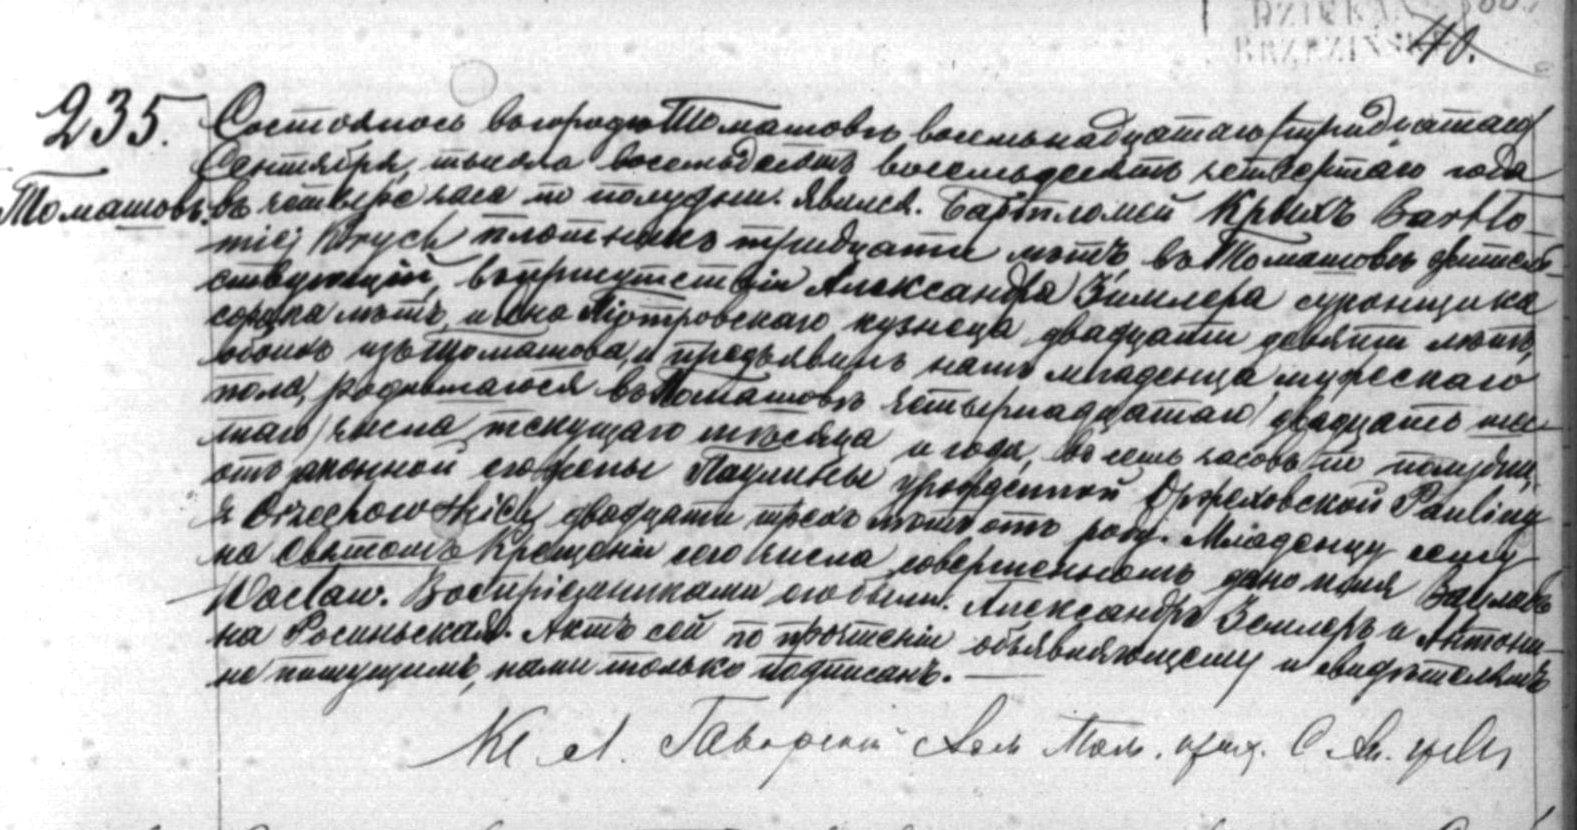 40.
235.
Томашовъ.
Состоялось въ городѣ Томашовѣ восемьнадцатаго /тридцатаго/
Сентября, тысяча восемьдесятъ восемьдесятъ четвертаго года
въ четыре часа по полудни. Явился. Бартломѣй Крыхъ Bartło-
miej Krych плотникъ тридцати лѣтъ, въ Томашовѣ жительс-
ствующій, въ присутствіи Александра Зимлера суконщика
сорока лѣтъ, и Яна Піотровскаго кузнеца двадцати девяти лѣтъ,
обоихъ изъ Томашова, и предъявилъ намъ младенца мужескаго
пола, родившагося въ Томашовѣ четырнадцатаго /двадцать шес-
таго/ числа текущаго мѣсяца и года, въ семь часовъ по полудни,
отъ законной его жены Паулины урожденной Оржеховской Pauliny
z Orzechowskich двадцати трехъ лѣтъ отъ роду. Младенцу сему
на Святомъ Крещеніи сего числа совершенномъ дано имя Вацлавъ
Wacław. Воспріемниками его были. Александръ Земмеръ и Антони-
на Росиньская. Актъ сей по прочтеніи объявляющему и свидѣтелямъ
не пишущимъ, нами только подписанъ.